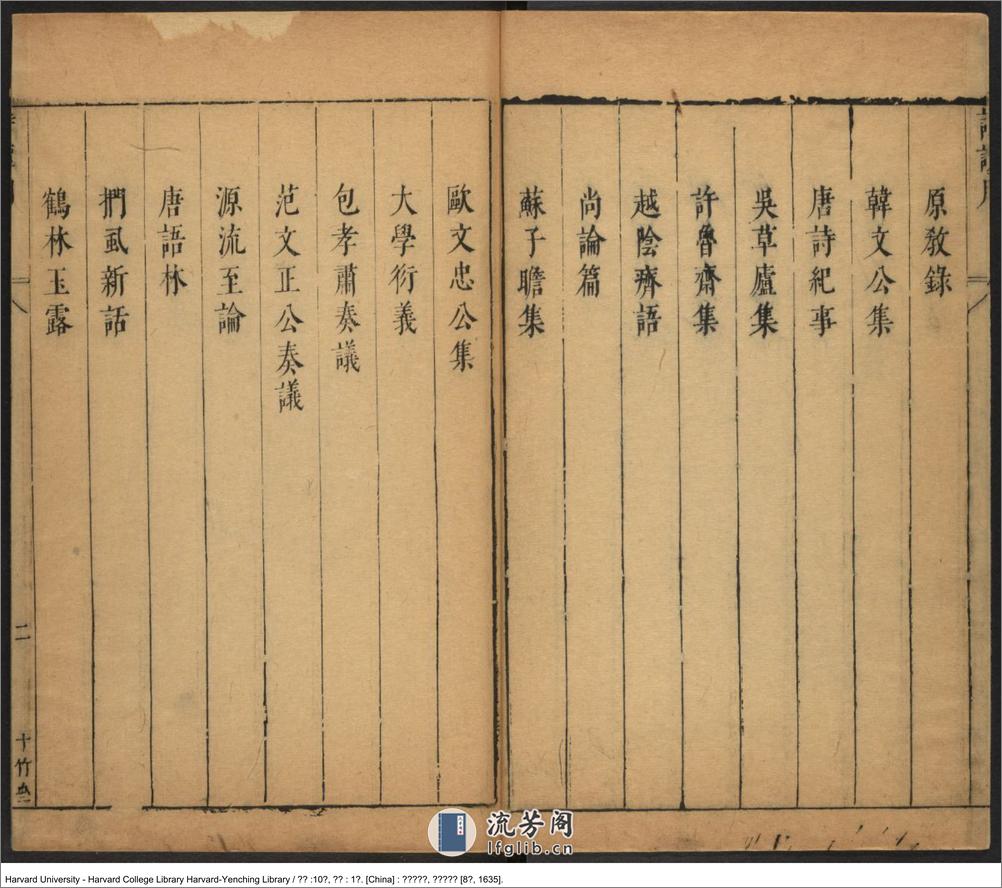 原教錄
韓文公集
唐詩紀事
吳草廬集
許魯齋集
越陰齊語
尚論篇
蘇子瞻集
歐文忠公集
大學衍義
包孝肅奏議
范文正公奏議
源流至論
唐語林
捫虱新話
鶴林玉露
二
十竹
流芳阁
lfglib.cn
Harvard University - Harvard College Library Harvard-Yenching Library / ?? :10?, ?? : 1?. [China] : ?????, ????? [8?, 1635].